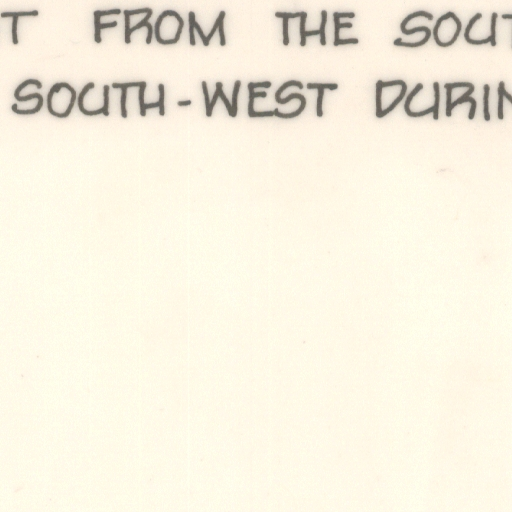 T FROM THE SOUT
SOUTH-WEST DURIN